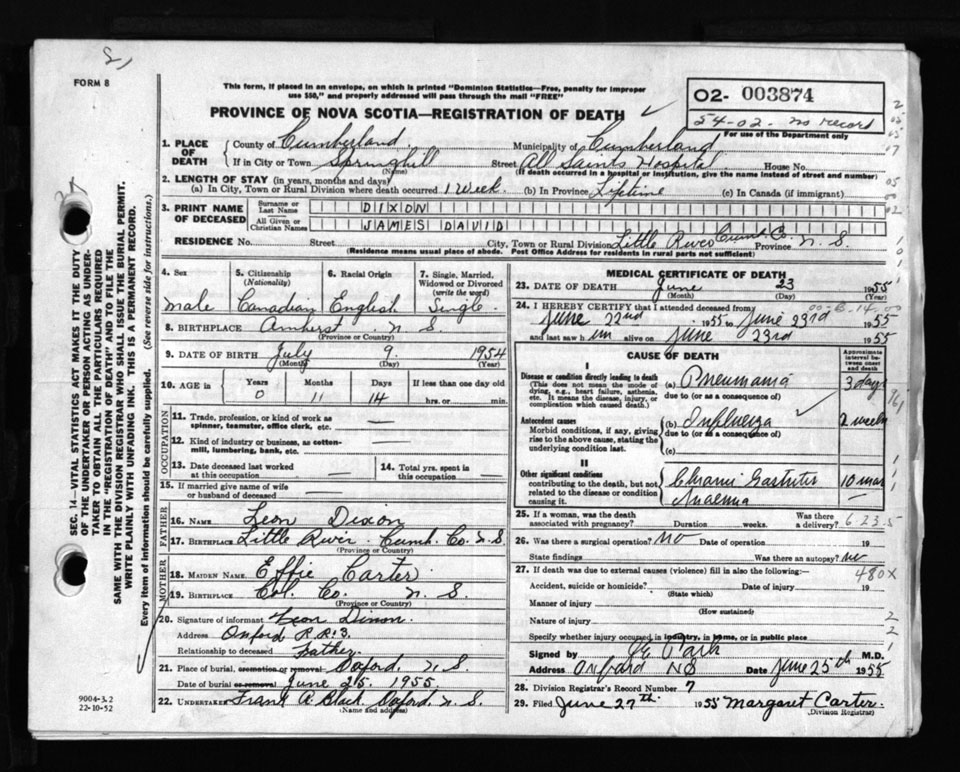 FORM 8
This form, if placed in an envelope, on which is printed "Dominion Statistics—Free, penalty for improper
use $50," and properly addressed will pass through the mail "FREE"
PROVINCE OF NOVA SCOTIA—REGISTRATION OF DEATH
02- 003874
54-02. no record
For use of the Department only
1. PLACE OF DEATH County of Cumberland Municipality of Cumberland
If in City or Town Springhill Street All Saints Hospital House No.
(Name) (If death occurred in a hospital or institution, give the name instead of street and number)
2. LENGTH OF STAY (in years, months and days)
(a) In City, Town or Rural Division where death occurred 1 Week. (b) In Province Lifetime (c) In Canada (if immigrant)
3. PRINT NAME OF DECEASED Surname or Last Name DIXON
All Given or Christian Names JAMES DAVID
RESIDENCE No. Street City, Town or Rural Division Little River Cumb. Co. Province N. S.
(Residence means usual place of abode. Post Office Address for residents in rural parts not sufficient)
4. Sex 5. Citizenship (Nationality) 6. Racial Origin 7. Single, Married, Widowed or Divorced (write the word)
male Canadian English Single.
8. BIRTHPLACE Amherst N. S.
(Province or Country)
9. DATE OF BIRTH July 9. 1954
(Month) (Day) (Year)
10. AGE in Years Months Days If less than one day old
0 11 14 hrs. or min.
OCCUPATION
11. Trade, profession, or kind of work as spinner, teamster, office clerk, etc. —
12. Kind of industry or business, as cotton-mill, lumbering, bank, etc. —
13. Date deceased last worked at this occupation — 14. Total yrs. spent in this occupation —
15. If married give name of wife or husband of deceased —
FATHER
16. NAME Leon Dixon
17. BIRTHPLACE Little River. Cumb. Co. N. S.
(Province or Country)
MOTHER
18. MAIDEN NAME Effie Carter.
19. BIRTHPLACE Col. Co. N. S.
(Province or Country)
20. Signature of informant Leon Dixon.
Address Oxford R.R. 3.
Relationship to deceased Father.
21. Place of burial, cremation or removal Oxford, N. S.
Date of burial or removal June 25. 1955.
22. UNDERTAKER Frank A. Black. Oxford, N. S.
(Name and address)
MEDICAL CERTIFICATE OF DEATH
23. DATE OF DEATH June 23 1955
(Month) (Day) (Year)
24. I HEREBY CERTIFY that I attended deceased from
June 22nd 1955 to June 23rd 1955
and last saw him alive on June 23rd 1955
CAUSE OF DEATH
Approximate interval between onset and death
I
Disease or condition directly leading to death (a) Pneumonia 3 days
(This does not mean the mode of dying, e.g., heart failure, asthenia, etc. It means the disease, injury, or complication which caused death.)
due to (or as a consequence of)
Antecedent causes (b) Influenza 2 weeks
Morbid conditions, if any, giving rise to the above cause, stating the underlying condition last.
due to (or as a consequence of)
(c)
II
Other significant conditions contributing to the death, but not related to the disease or condition causing it.
Chronic Gastritis 10 mos
Anaemia
25. If a woman, was the death associated with pregnancy? Duration weeks. Was there a delivery? 6-23-5
26. Was there a surgical operation? No Date of operation 19
State findings Was there an autopsy? No
27. If death was due to external causes (violence) fill in also the following:— 480X
Accident, suicide or homicide? Date of injury 19
(State which)
Manner of injury
(How sustained)
Nature of injury
Specify whether injury occurred in industry, in home, or in public place
Signed by M.D.
Address Oxford NS Date June 25th 1955
28. Division Registrar's Record Number 7
29. Filed June 27th. 1955 Margaret Carter.
(Division Registrar)
SEC. 14—VITAL STATISTICS ACT MAKES IT THE DUTY
OF THE UNDERTAKER OR PERSON ACTING AS UNDER-
TAKER TO OBTAIN ALL THE PARTICULARS REQUIRED
IN THE "REGISTRATION OF DEATH" AND TO FILE THE
SAME WITH THE DIVISION REGISTRAR WHO SHALL ISSUE THE BURIAL PERMIT.
WRITE PLAINLY WITH UNFADING INK. THIS IS A PERMANENT RECORD.
Every item of information should be carefully supplied. (See reverse side for instructions.)
9004-3.2
22-10-52